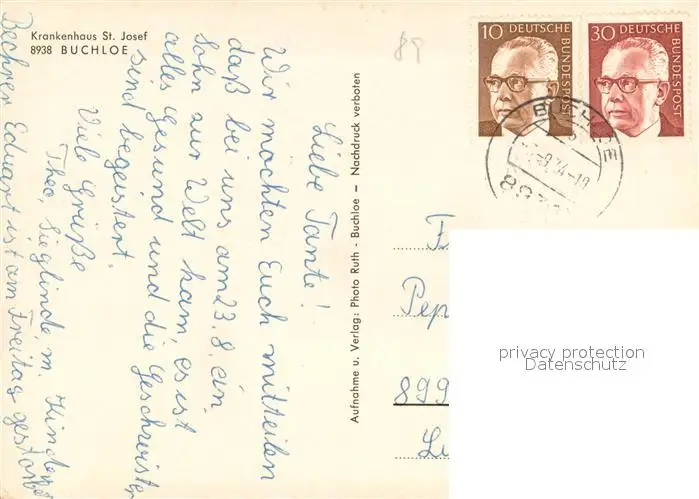 Krankenhaus St. Josef
8938 BUCHLOE
Liebe Tante!
Wir möchten Euch mitteilen
daß bei uns am 23.8. ein
Sohn zur Welt kam, es ist
alles gesund und die Geschwister
sind begeistert.
Viele Grüße
Theo, Sieglinde, m. Kinder
Bechrer Eduart ist am Freitag gestorben
Aufnahme u. Verlag: Photo Ruth - Buchloe — Nachdruck verboten
89
10 DEUTSCHE BUNDESPOST
30 DEUTSCHE BUNDESPOST
BUCHLOE
F
Pep
899
privacy protection
Datenschutz